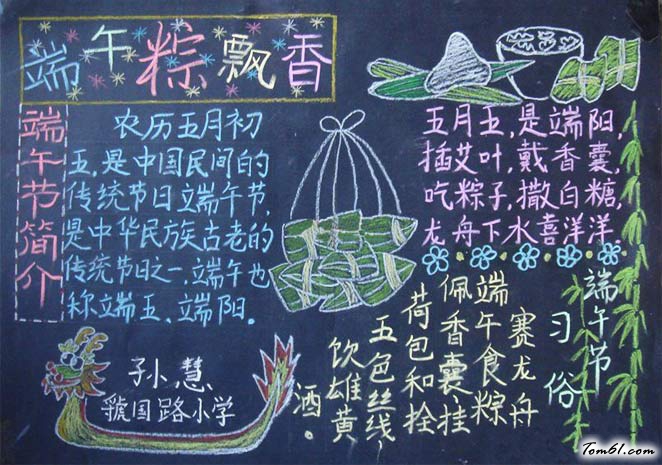 端午粽飘香
端午节简介
农历五月初
五，是中国民间的
传统节日端午节，
是中华民族古老的
传统节日之一，端午也
称端五、端阳。
五月五，是端阳，
插艾叶，戴香囊，
吃粽子，撒白糖，
龙舟下水喜洋洋
端午节
习俗
赛龙舟
端午食粽
佩香囊、挂
荷包和拴
五色丝线
饮雄黄
酒。
孙慧
虢国路小学
Tom61.com